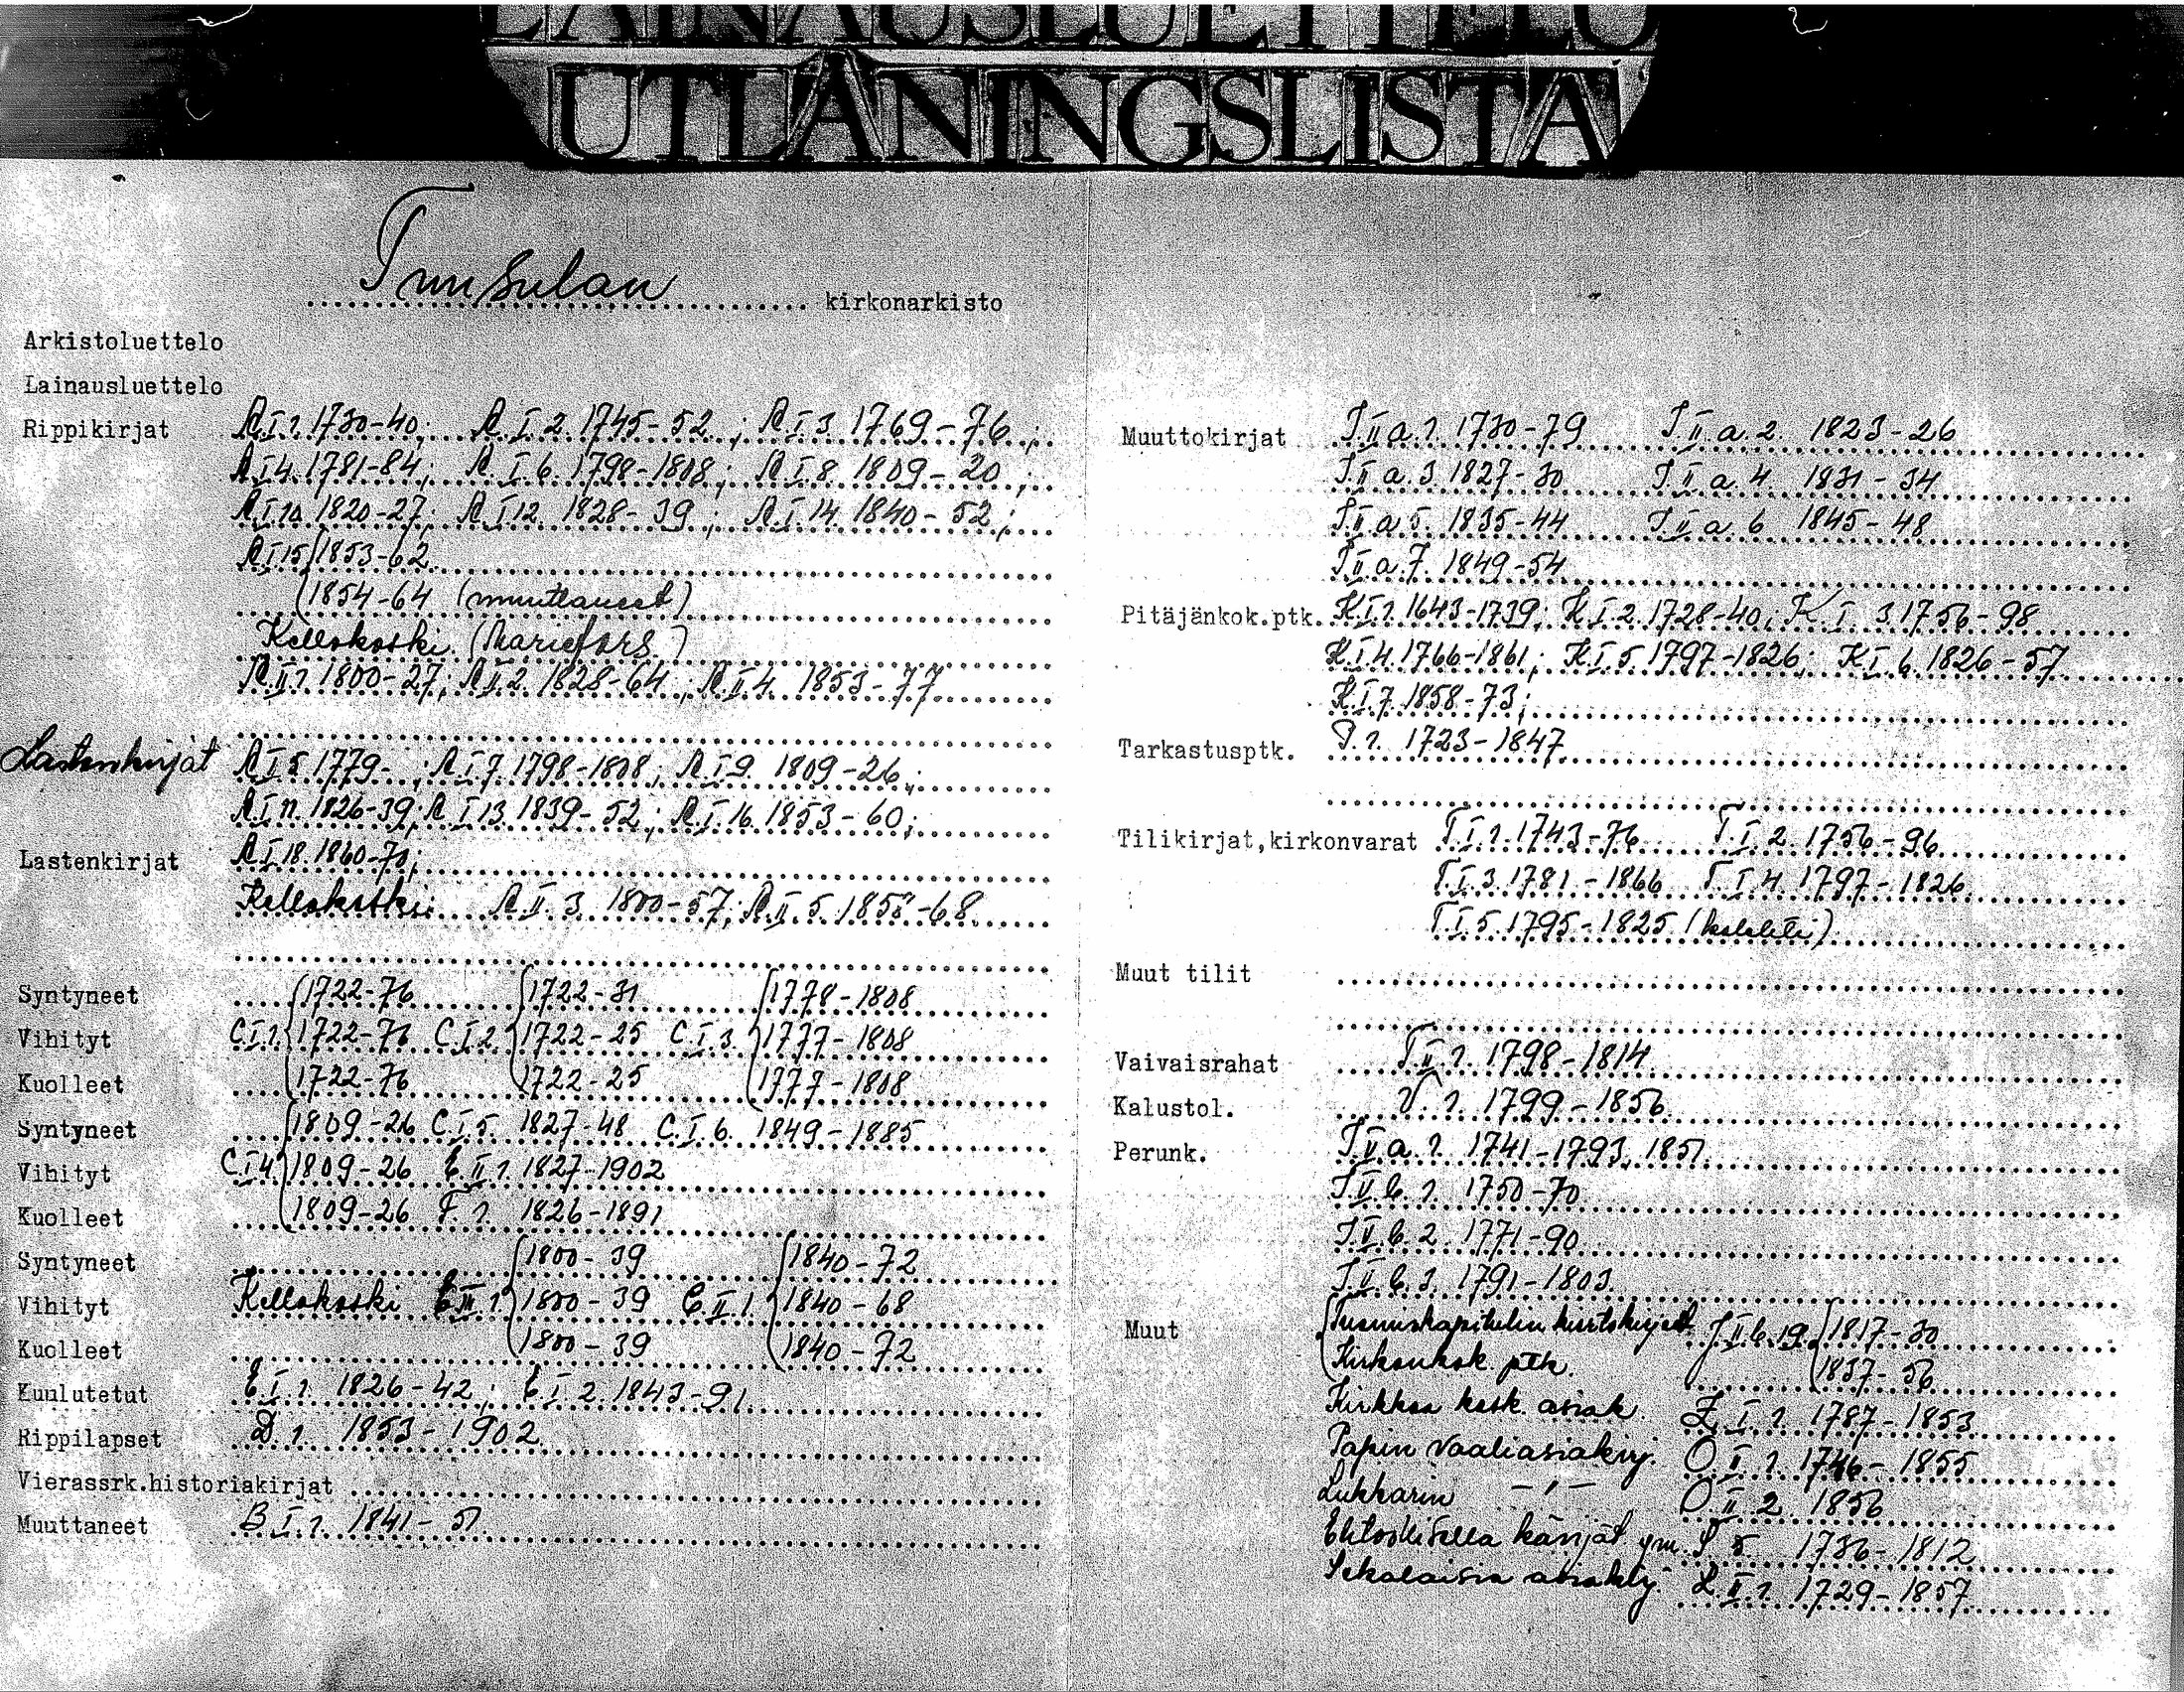 LAINAUSLUETTELO
UTLÅNINGSLISTA
Tuusulan kirkonarkisto
Arkistoluettelo
Lainausluettelo
Rippikirjat A.I.1. 1730-40; A.I.2. 1745-52; A.I.3. 1769-76;
A.I.4. 1781-84; A.I.6. 1798-1808; A.I.8. 1809-20;
A.I.10. 1820-27; A.I.12. 1828-39; A.I.14. 1840-52;
A.I.15. 1853-62
1854-64 (muuttaneet)
Kellokoski (Mariefors)
A.II.1. 1800-27; A.II.2. 1828-64; A.II.4. 1853-77
Lastenkirjat A.I.5. 1779- ; A.I.7. 1798-1808; A.I.9. 1809-26;
A.I.11. 1826-39; A.I.13. 1839-52; A.I.16. 1853-60;
Lastenkirjat A.I.18. 1860-70;
Kellokoski A.II.3. 1800-57; A.II.5. 1858-68
Syntyneet 1722-76 1722-31 1778-1808
Vihityt C.I.1. 1722-76 C.I.2. 1722-25 C.I.3. 1777-1808
Kuolleet 1722-76 1722-25 1777-1808
Syntyneet 1809-26 C.I.5. 1827-48 C.I.6. 1849-1885
Vihityt C.I.4. 1809-26 E.II.1. 1827-1902
Kuolleet 1809-26 F.1. 1826-1891
Syntyneet 1800-39 1840-72
Vihityt Kellokoski 1800-39 C.II.1. 1840-68
Kuolleet 1800-39 1840-72
Kuulutetut E.I.1. 1826-42; E.I.2. 1843-91
Rippilapset D.1. 1853-1902
Vierassrk.historiakirjat
Muuttaneet B.I.1. 1841-51
Muuttokirjat J.II.a.1. 1730-79 J.II.a.2. 1823-26
J.II.a.3. 1827-30 J.II.a.4. 1831-34
J.II.a.5. 1835-44 J.II.a.6. 1845-48
J.II.a.7. 1849-54
Pitäjänkok.ptk. K.I.1. 1643-1739; K.I.2. 1728-40; K.I.3. 1756-98
K.I.4. 1766-1861; K.I.5. 1797-1826; K.I.6. 1826-57
K.I.7. 1858-73;
Tarkastusptk. P.1. 1723-1847
Tilikirjat,kirkonvarat T.I.1. 1743-76 T.I.2. 1756-96
T.I.3. 1781-1866 T.I.4. 1797-1826
T.I.5. 1795-1825 (kolehti)
Muut tilit
Vaivaisrahat T.II.1. 1798-1814
Kalustol. V.1. 1799-1856
Perunk. J.V.a.1. 1741-1793, 1851
J.V.b.1. 1750-70
J.V.b.2. 1771-90
J.V.b.3. 1791-1803
Muut Tuomiokapitulin kiertokirjeet J.II.b.19. 1817-30
Kirkonkok. ptk. 1837-56
Kirkkoa kosk. asiak. Z.I.1. 1787-1853
Papin vaaliasiakirj. O.I.1. 1746-1855
Lukkarin -"- O.II.2. 1856
Ehtoollisella kävijät ym. S 5. 1786-1812
Sekalaisia asiakirj. L.II.1. 1729-1857